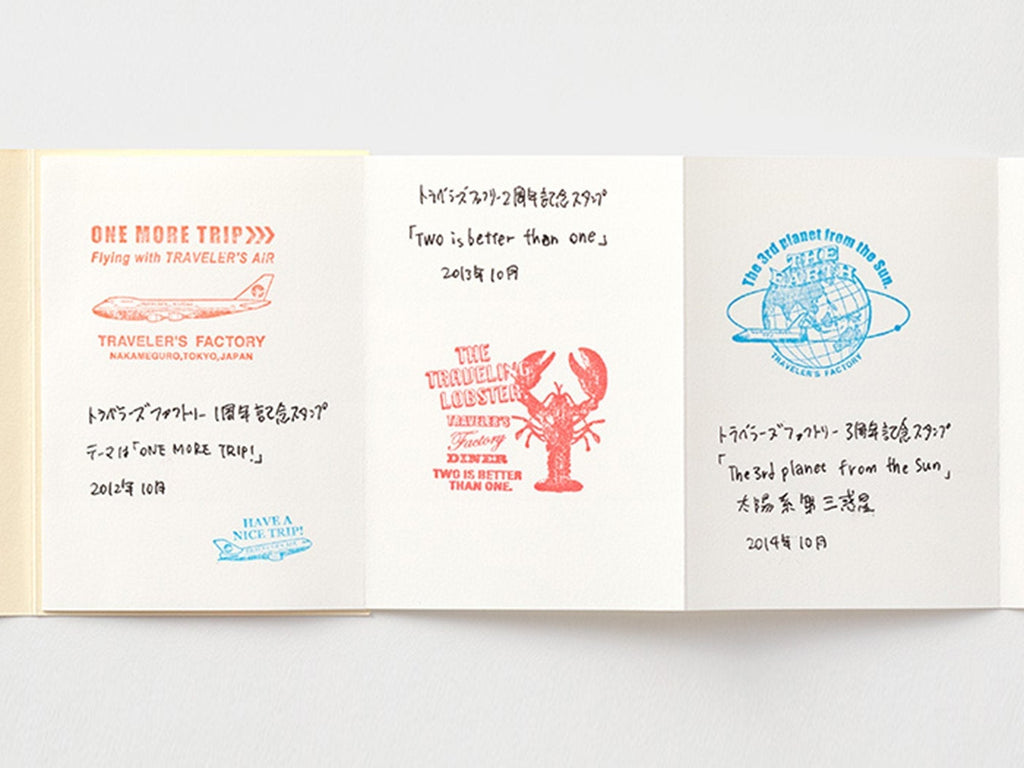 ONE MORE TRIP>>>
Flying with TRAVELER'S AiR
TRAVELER'S FACTORY
NAKAMEGURO,TOKYO,JAPAN
トラベラーズファクトリー 1周年記念スタンプ
テーマは「ONE MORE TRIP!」
2012年 10月
HAVE A
NICE TRIP!
トラベラーズファクトリー2周年記念スタンプ
「Two is better than one」
2013年 10月
THE
TRAVELING
LOBSTER
TRAVELER'S
Factory
DINER
TWO IS BETTER
THAN ONE.
The 3rd planet from the Sun.
THE
EARTH
TRAVELER'S FACTORY
トラベラーズファクトリー 3周年記念スタンプ
「The 3rd planet from the Sun」
太陽系第三惑星
2014年 10月